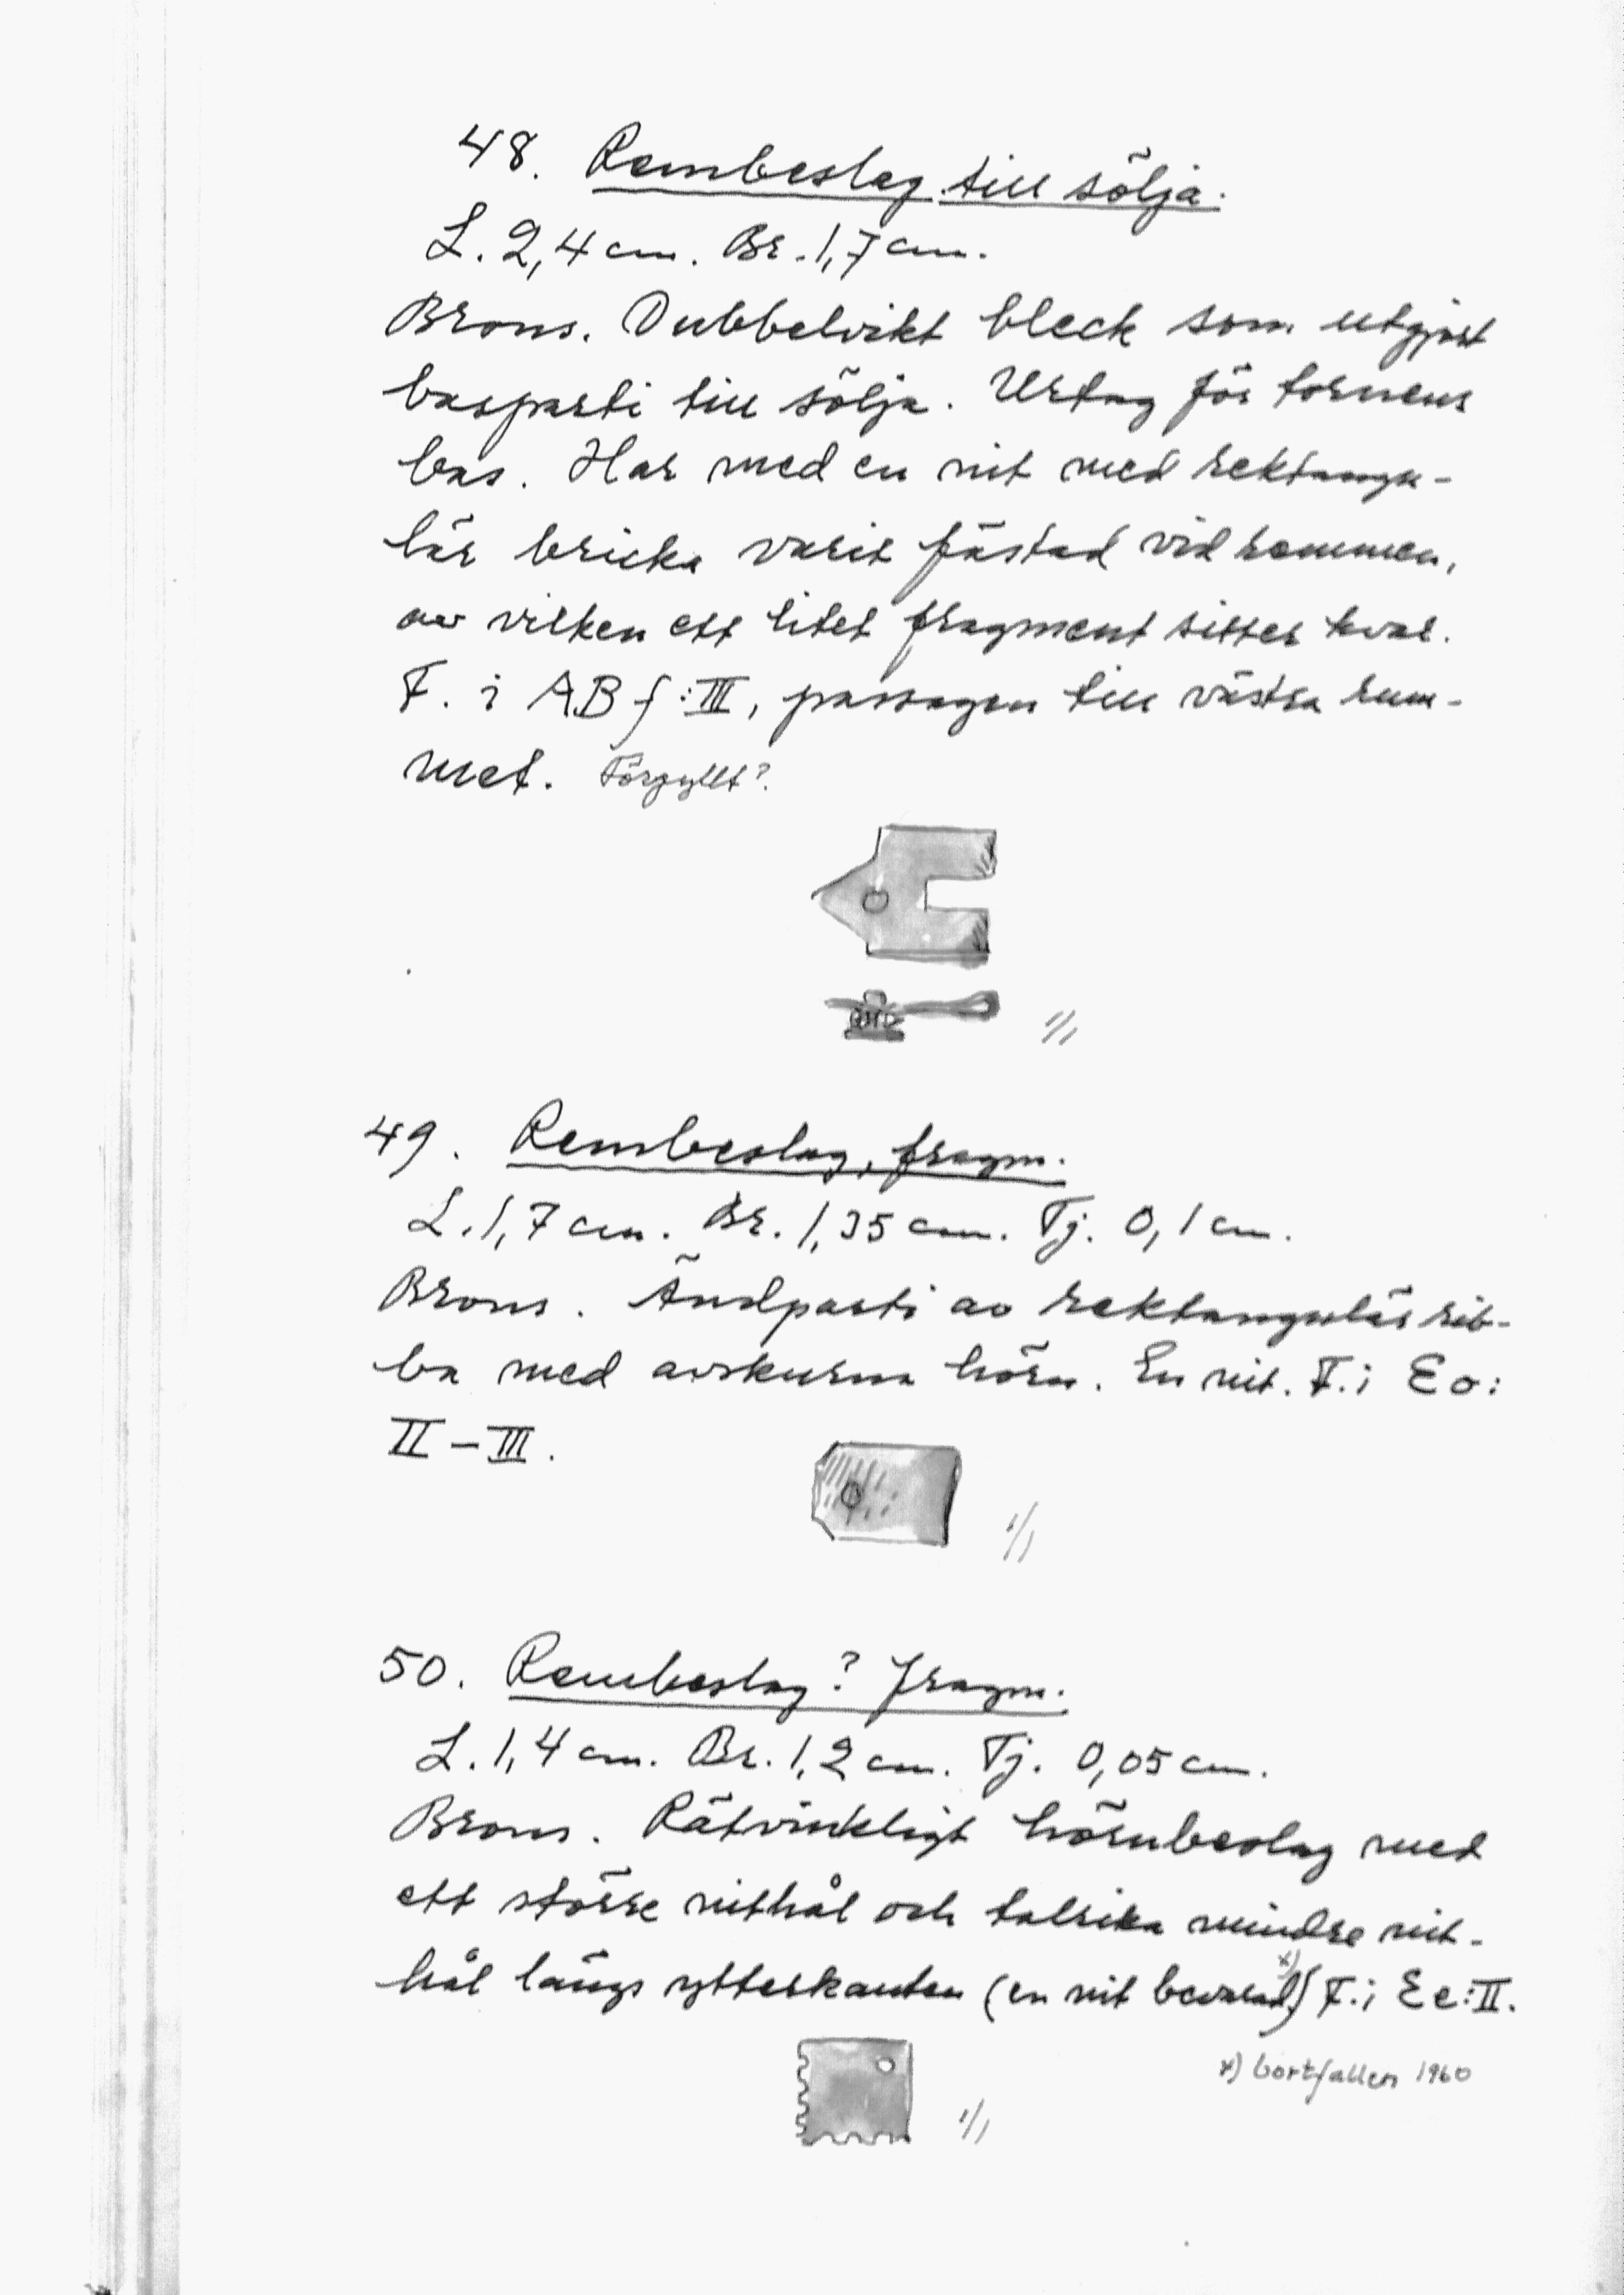 48. Rembeslag till sölja.
L. 2,4 cm. Br. 1,7 cm.
Brons. Dubbelvikt bleck som utgjort
basparti till sölja. Urtag för tornens
bas. Har med en nit med rektangu-
lär bricka varit fästad vid remmen,
av vilken ett litet fragment sitter kvar.
F. i ABf:III, passagen till västra rum-
met. Förgyllt?
1/1
49. Rembeslag, fragm.
L. 1,7 cm. Br. 1,35 cm. Tj. 0,1 cm.
Brons. Ändparti av rektangulär rib-
ba med avskurna hörn. En nit. F. i Eo:
II – III.
1/1
50. Rembeslag? Fragm.
L. 1,4 cm. Br. 1,2 cm. Tj. 0,05 cm.
Brons. Rätvinkligt hörnbeslag med
ett större nithål och talrika mindre nit-
hål längs ytterkanten (en nit bevarad x)) F. i Ee:II.
x) bortfallen 1960
1/1